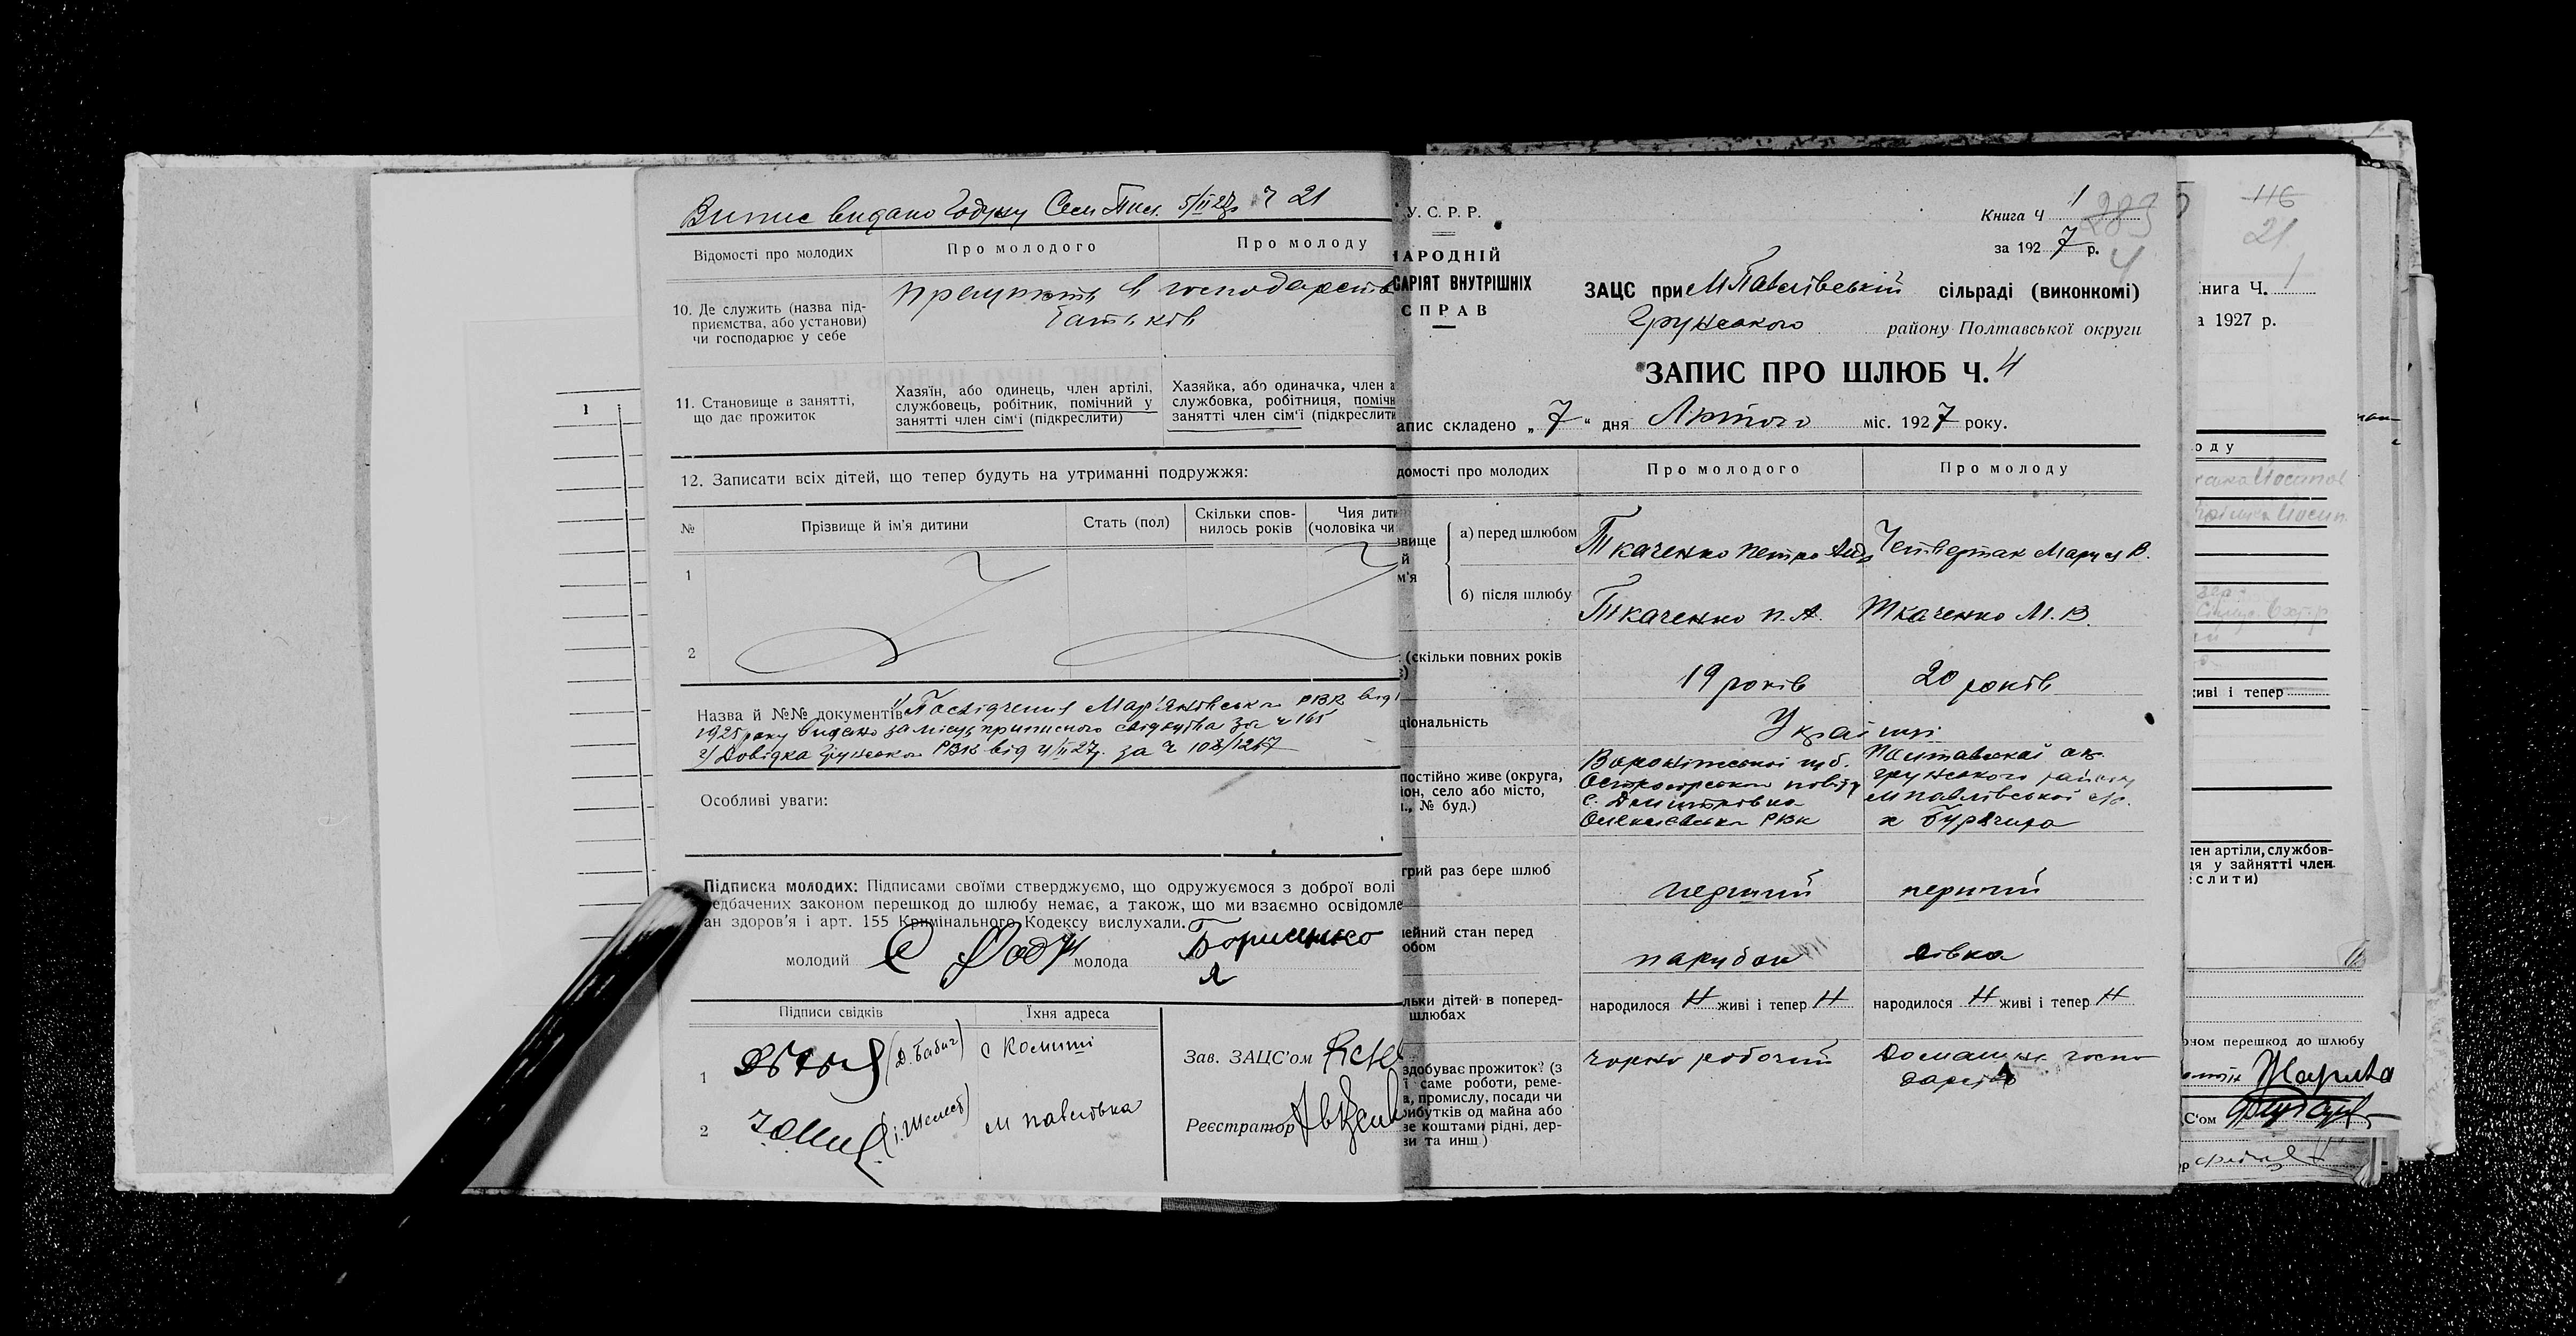 Випис видано Году Сем Пил. 5/II 27р Ч 21
Відомості про молодих
Про молодого
Про молоду
10. Де служить (назва під-
приємства, або установи)
чи господарює у себе
працюють в господарстві
батьків
11. Становище в занятті,
що дає прожиток
Хазяїн, або одинець, член артілі,
службовець, робітник, помічний у
занятті член сім'ї (підкреслити)
Хазяйка, або одиначка, член а
службовка, робітниця, помічн
занятті член сім'ї (підкреслити
12. Записати всіх дітей, що тепер будуть на утриманні подружжя:
№
Прізвище й ім'я дитини
Стать (пол)
Скільки спов-
нилось років
Чия дити
(чоловіка чи
1
2
Назва й №№ документів
1925 року видано замісць приписного свідоцтва за ч 165
2/ Довідка Грунськ РВК від 4/II 27р. за ч 108/1267
Особливі уваги:
Підписка молодих: Підписами своїми стверджуємо, що одружуємося з доброї волі
едбачених законом перешкод до шлюбу немає, а також, що ми взаємно освідомле
ан здоров'я і арт. 155 Кримінального Кодексу вислухали.
молодий
молода Борисенко
Я
Підписи свідків
Їхня адреса
1 (Д. Бабич) с Комиші
2 (І. Шелест) М Павлівка
Зав. ЗАЦС'ом
Реєстратор
У. С. Р. Р.
НАРОДНІЙ
САРІЯТ ВНУТРІШНІХ
СПРАВ
Книга Ч 1
283
за 1927 р.
4
ЗАЦС при М Павлівській сільраді (виконкомі)
Грунського району Полтавської округи
ЗАПИС ПРО ШЛЮБ Ч. 4
апис складено „ 7 “ дня Лютого міс. 1927 року.
домості про молодих
Про молодого
Про молоду
звище
й
м'я
а) перед шлюбом
Ткаченко Петро Анд
Четвертак Маруся В.
б) після шлюбу
Ткаченко П. А.
Ткаченко М. В.
(скільки повних років
19 років
20 років
ціональність
Українці
постійно живе (округа,
он, село або місто,
№ буд.)
Вороніжської губ.
Острогорськ повіту
с. Дмитрівка
РВК
Полтавської ок.
Грунського району
М Павлівської с/р.
трий раз бере шлюб
перший
перший
ейний стан перед
юбом
парубок
дівка
льки дітей в поперед-
шлюбах
народилося Н живі і тепер Н
народилося Н живі і тепер Н
здобуває прожиток? (з
ї саме роботи, реме-
а, промислу, посади чи
рибутків од майна або
ве коштами рідні, дер-
ви та инш)
чорно робочий
Домашнє госпо
дарство
116
21
нига Ч. 1
а 1927 р.
оду
иві і тепер
лен артіли, службов-
ця у зайнятті член
слити)
оном перешкод до шлюбу
С'ом
1